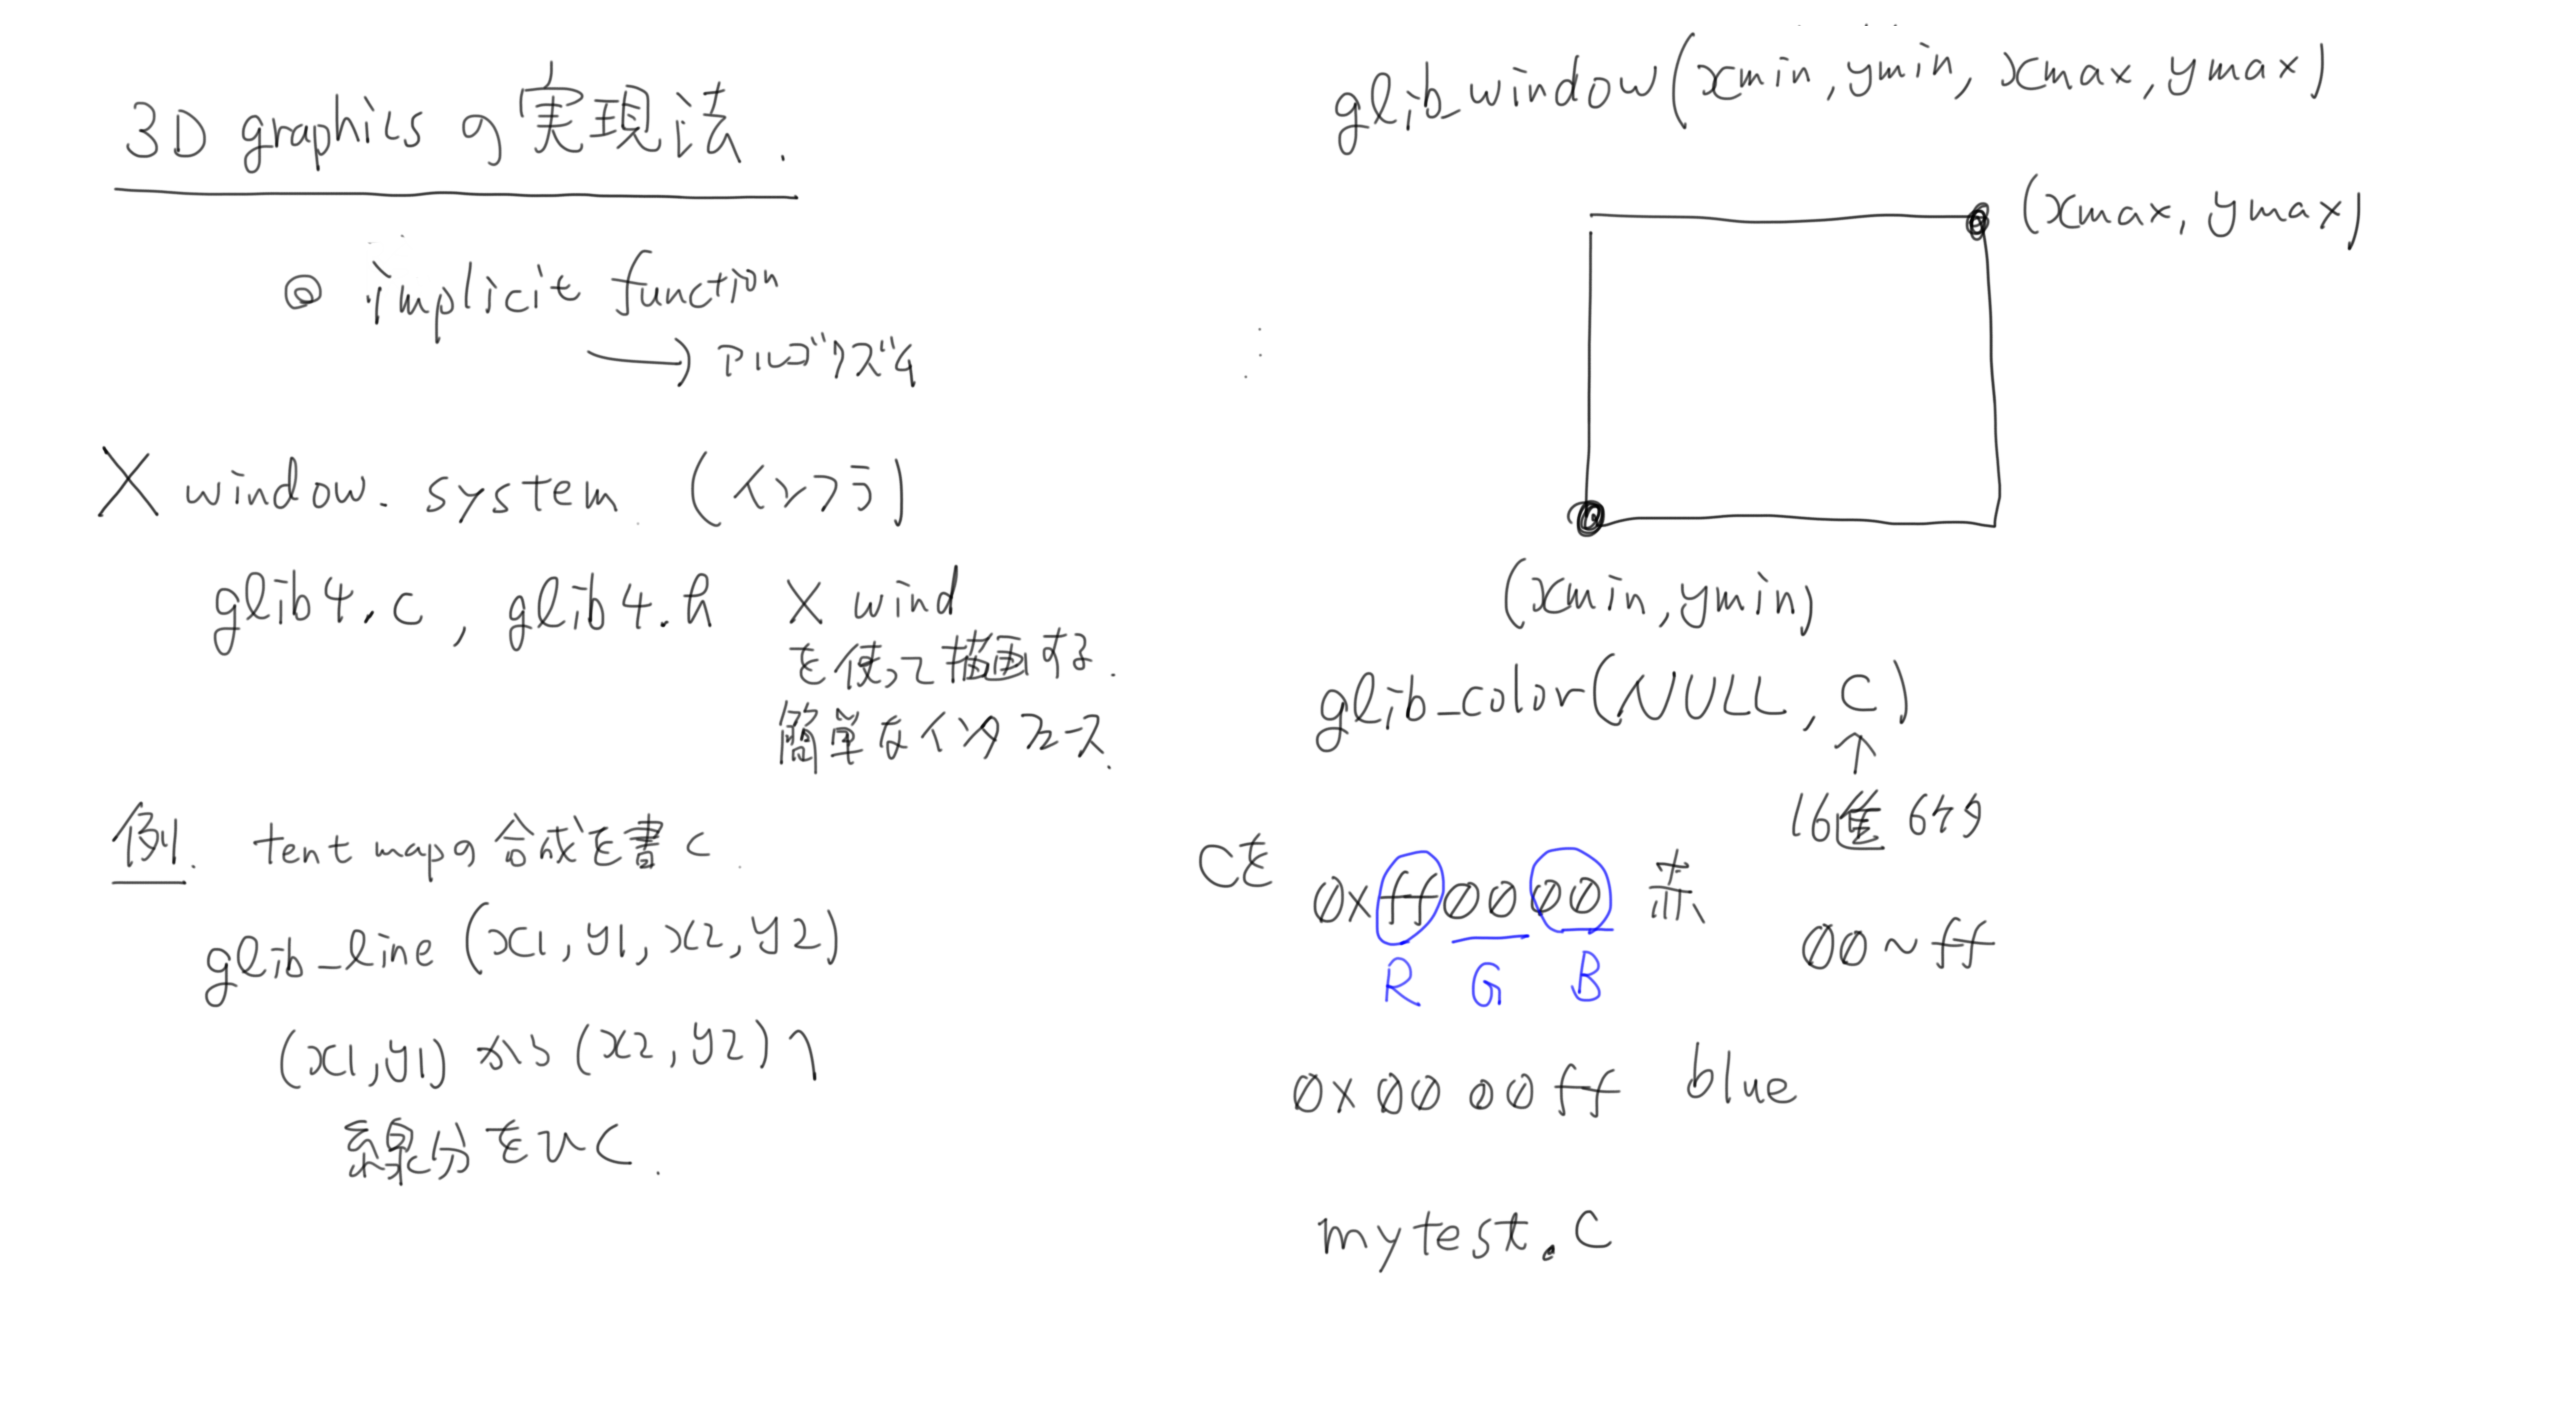 3D graphics の実現法.
◎ implicit function
→ アルゴリズム
X window. system (インフラ)
glib4.c, glib4.h X wind
を使って描画する.
簡単なインタフェース.
例. tent mapの合成を書く.
glib_line (x1, y1, x2, y2)
(x1, y1) から (x2, y2) へ
線分をひく.
glib_window(xmin, ymin, xmax, ymax)
(xmax, ymax)
(xmin, ymin)
glib_color(NULL, C)
↑
16進 6ケタ
Cを 0xff0000 赤
00~ff
R G B
0x0000ff blue
mytest.c